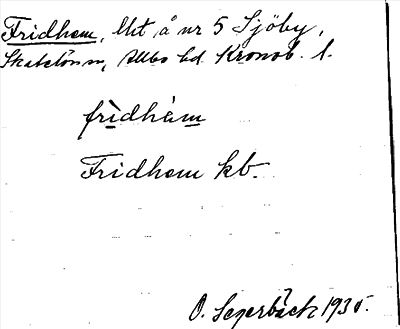 Fridhem, lht å nr 5 Sjöby,
Skatelöv sn, Allbo hd. Kronob. l.
frìdhàm
Fridhem kb.
O. Segerbäck 1935.